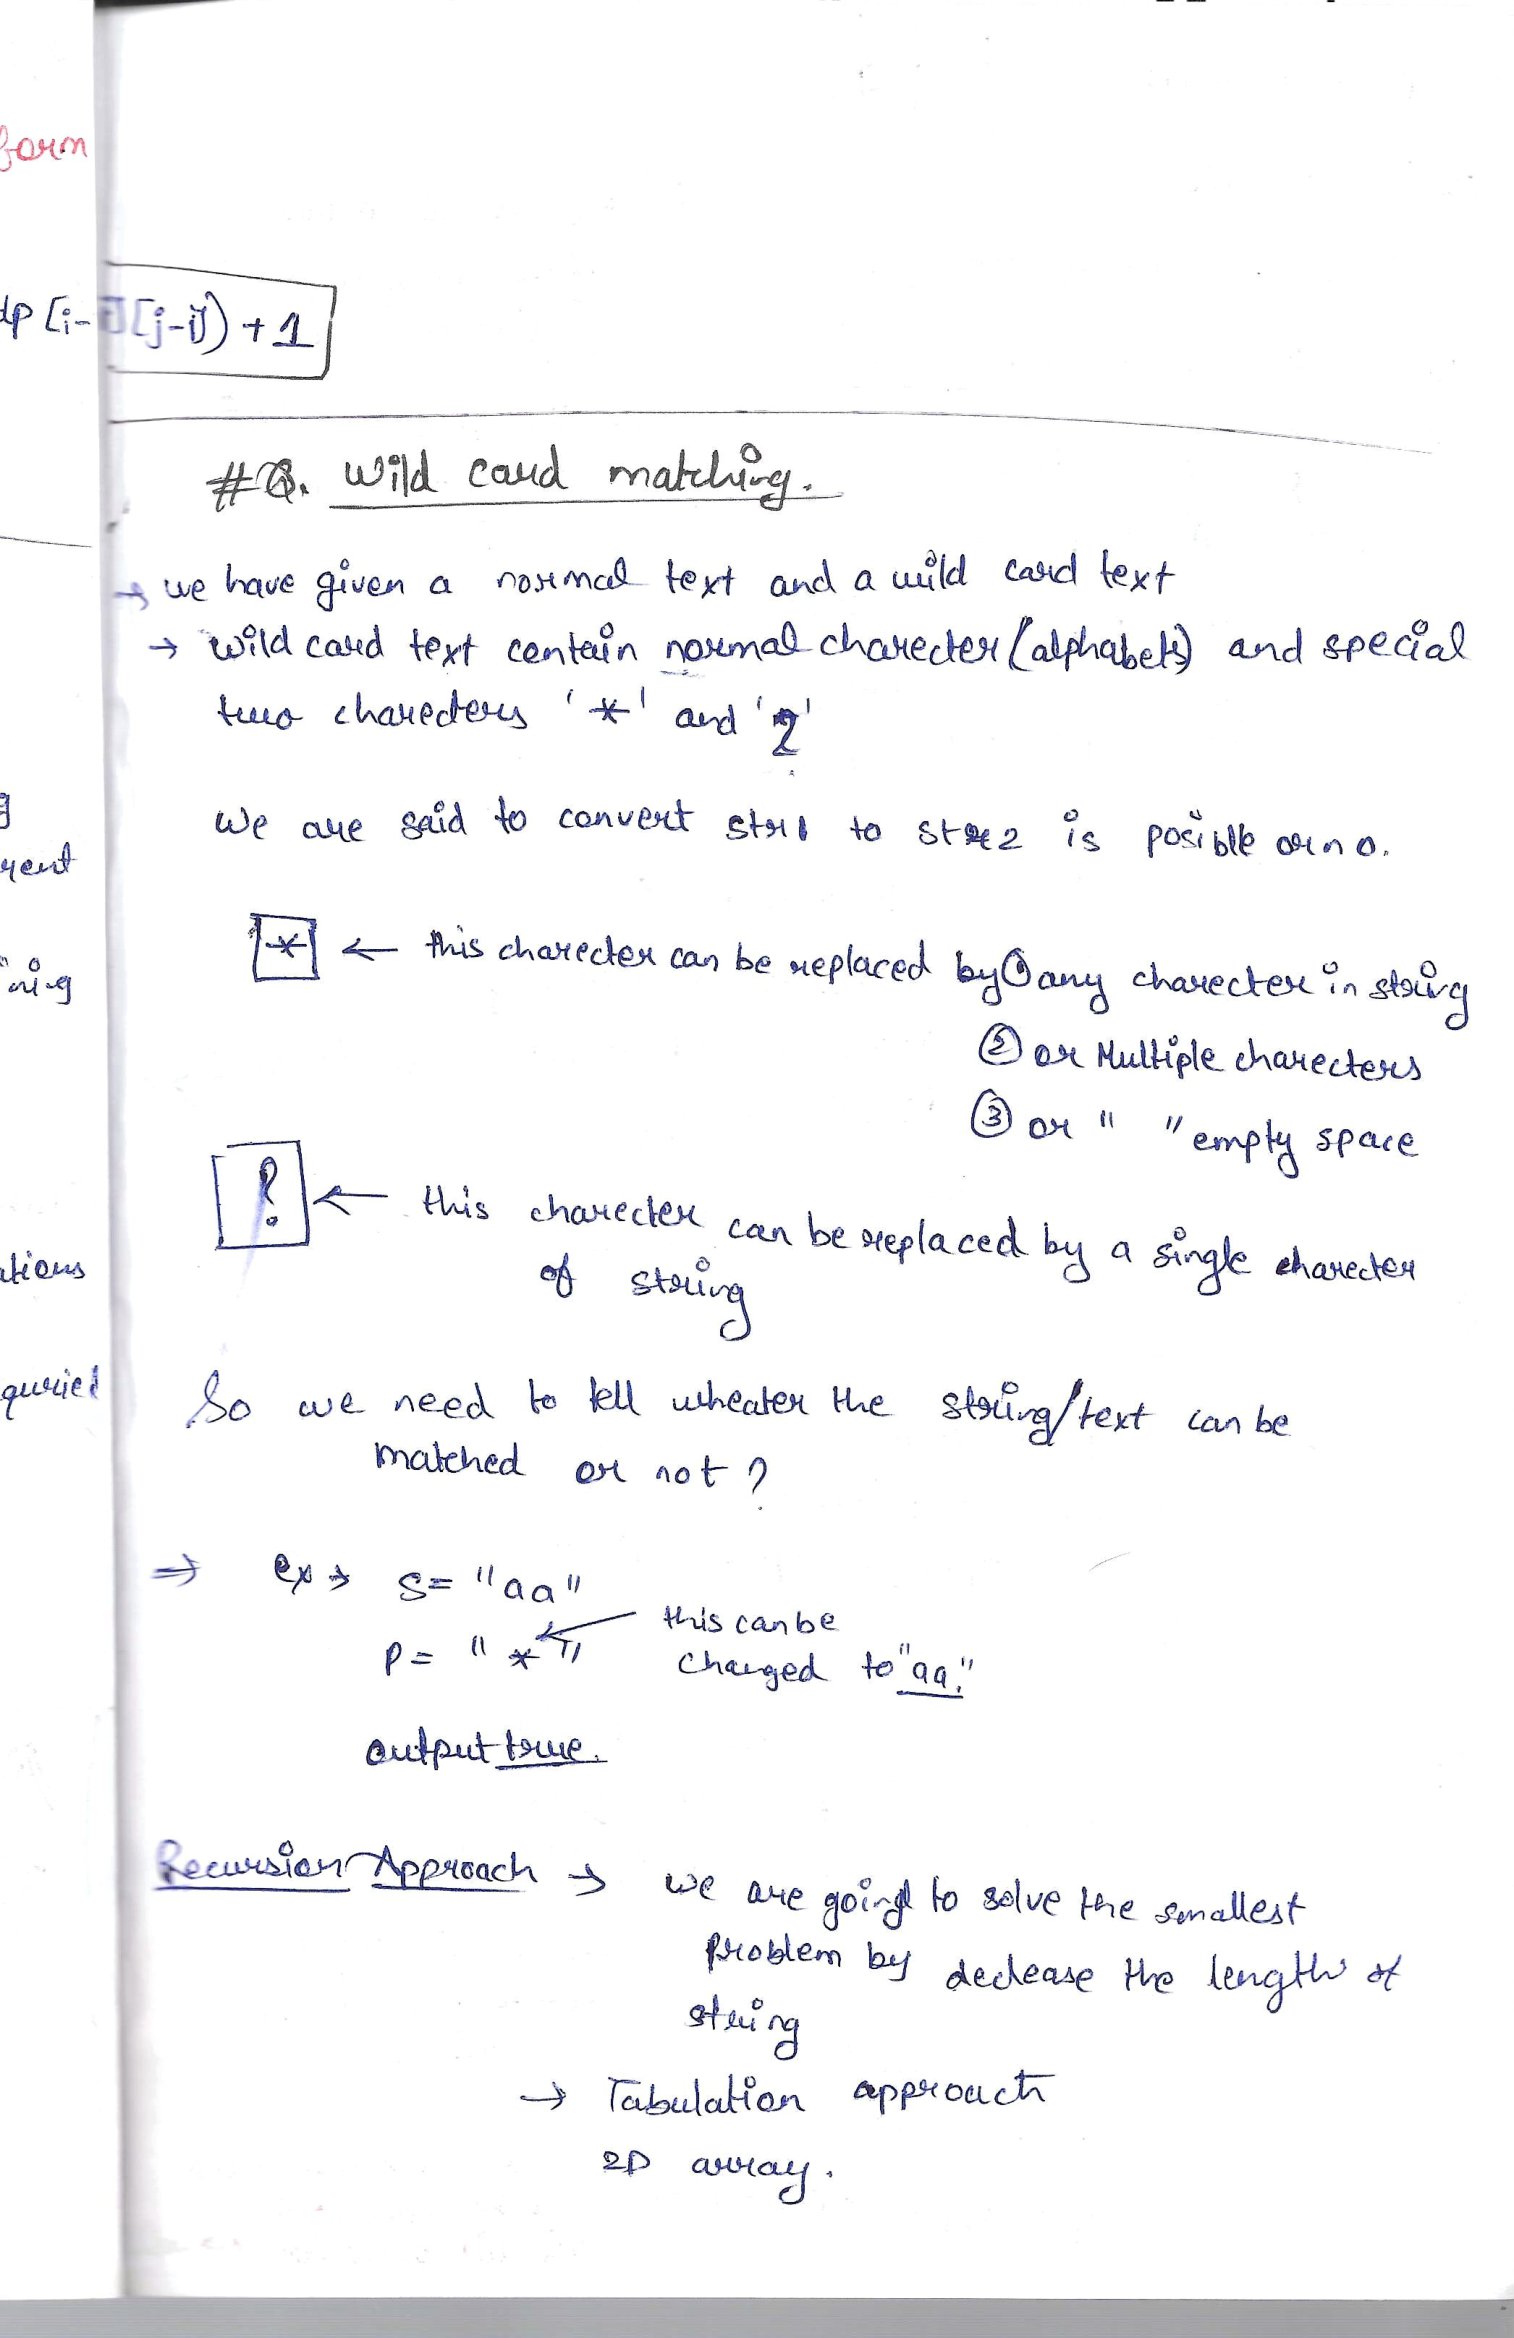 form
dp[i-1][j-1]) + 1
#Q. Wild card matching.
→ we have given a normal text and a wild card text
→ wild card text contain normal charecter (alphabets) and special
two charecters '*' and '?'
We are said to convert str1 to str2 is posible or no.
* ← this charecter can be replaced by ① any charecter in string
② or Multiple charecters
③ or " " empty space
? ← this charecter can be replaced by a single charecter
of string
So we need to tell wheater the string/text can be
matched or not?
⇒ ex → S= "aa"
P= "*" this can be
changed to "aa."
output true.
Recursion Approach → we are going to solve the smallest
problem by declease the length of
string
→ Tabulation approach
2D array.